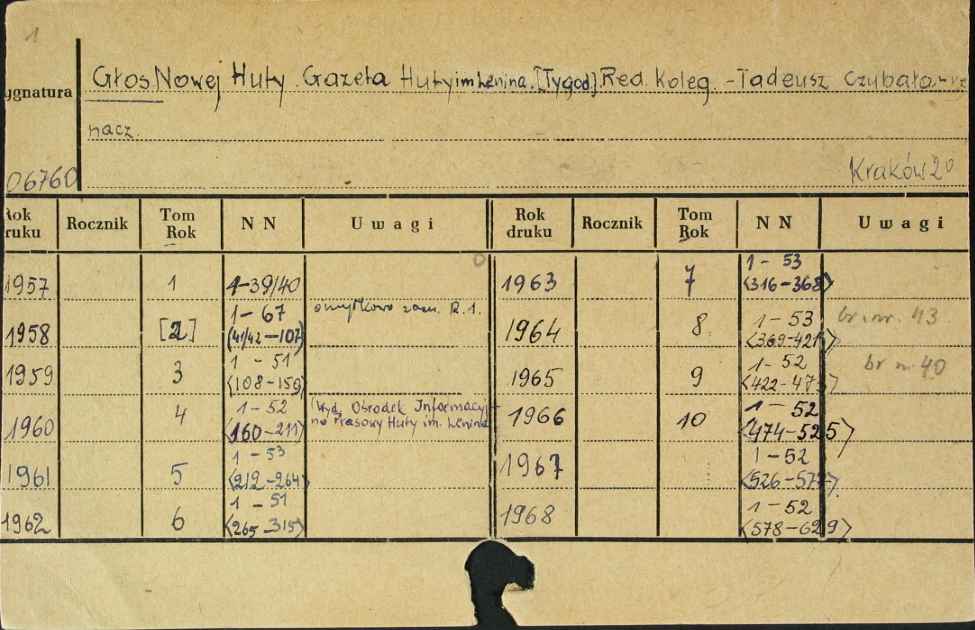 1
Głos Nowej Huty. Gazeta Huty im Lenina. [Tygod]. Red. Koleg. - Tadeusz Czubała - re
ygnatura
nacz.
06760 Kraków 20
Rok druku Rocznik Tom Rok N N Uwagi Rok druku Rocznik Tom Rok N N Uwagi
1957 1 1-39/40 1963 7 1 - 53 <316-368>
1958 [2] 1 - 67 (41/42-107) omyłkowo zazn. R. 1. 1964 8 1 - 53 <369-421> br. nr. 43
1959 3 1 - 51 (108-159) 1965 9 1 - 52 <422-473> br n. 40
1960 4 1 - 52 (160-211) (Wyd. Ośrodek Informacyj- 1966 10 1 - 52 <474-525>
no Prasowy Huty im. Lenina
1961 5 1 - 53 <212-264> 1967 1 - 52 <526-577>
1962 6 1 - 51 <265-315> 1968 1 - 52 <578-629>